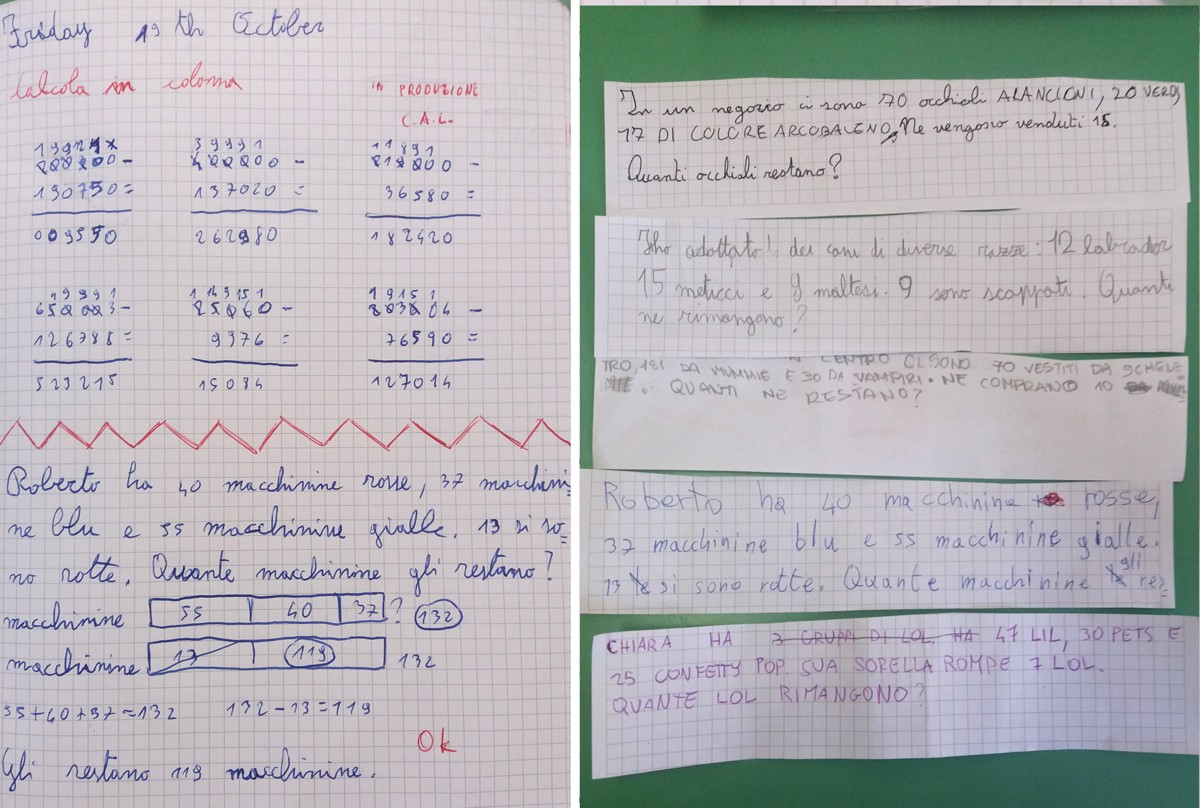 Friday 19th October
Calcola in colonna
IN PRODUZIONE
C.A.L.
130750= 137020= 36580=
009550 262980 182420
126788= 9376= 76590=
523215 15084 127014
Roberto ha 40 macchinine rosse, 37 macchini=
ne blu e 55 macchinine gialle. 13 si so=
no rotte. Quante macchinine gli restano?
macchinine 55 40 37 ? 132
macchinine 13 119 132
55+40+37=132 132-13=119
Ok
Gli restano 119 macchinine.
In un negozio ci sono 70 occhiali ARANCIONI, 20 VERDI
17 DI COLORE ARCOBALENO. Ne vengono venduti 15.
Quanti occhiali restano?
Ho adottato dei cani di diverse razze: 12 labrador
15 meticci e 9 maltesi. 9 sono scappati. Quanti
ne rimangono?
IN CENTRO CI SONO 70 VESTITI DA SCHELE
TRO, 181 DA MUMMIE E 30 DA VAMPIRI. NE COMPRANO 10
QUANTI NE RESTANO?
Roberto ha 40 macchinine rosse,
37 macchinine blu e 55 macchinine gialle.
13 si sono rotte. Quante macchinine gli res=
CHIARA HA 3 GRUPPI DI LOL. HA 47 LIL, 30 PETS E
25 CONFETTY POP. SUA SORELLA ROMPE 7 LOL.
QUANTE LOL RIMANGONO?